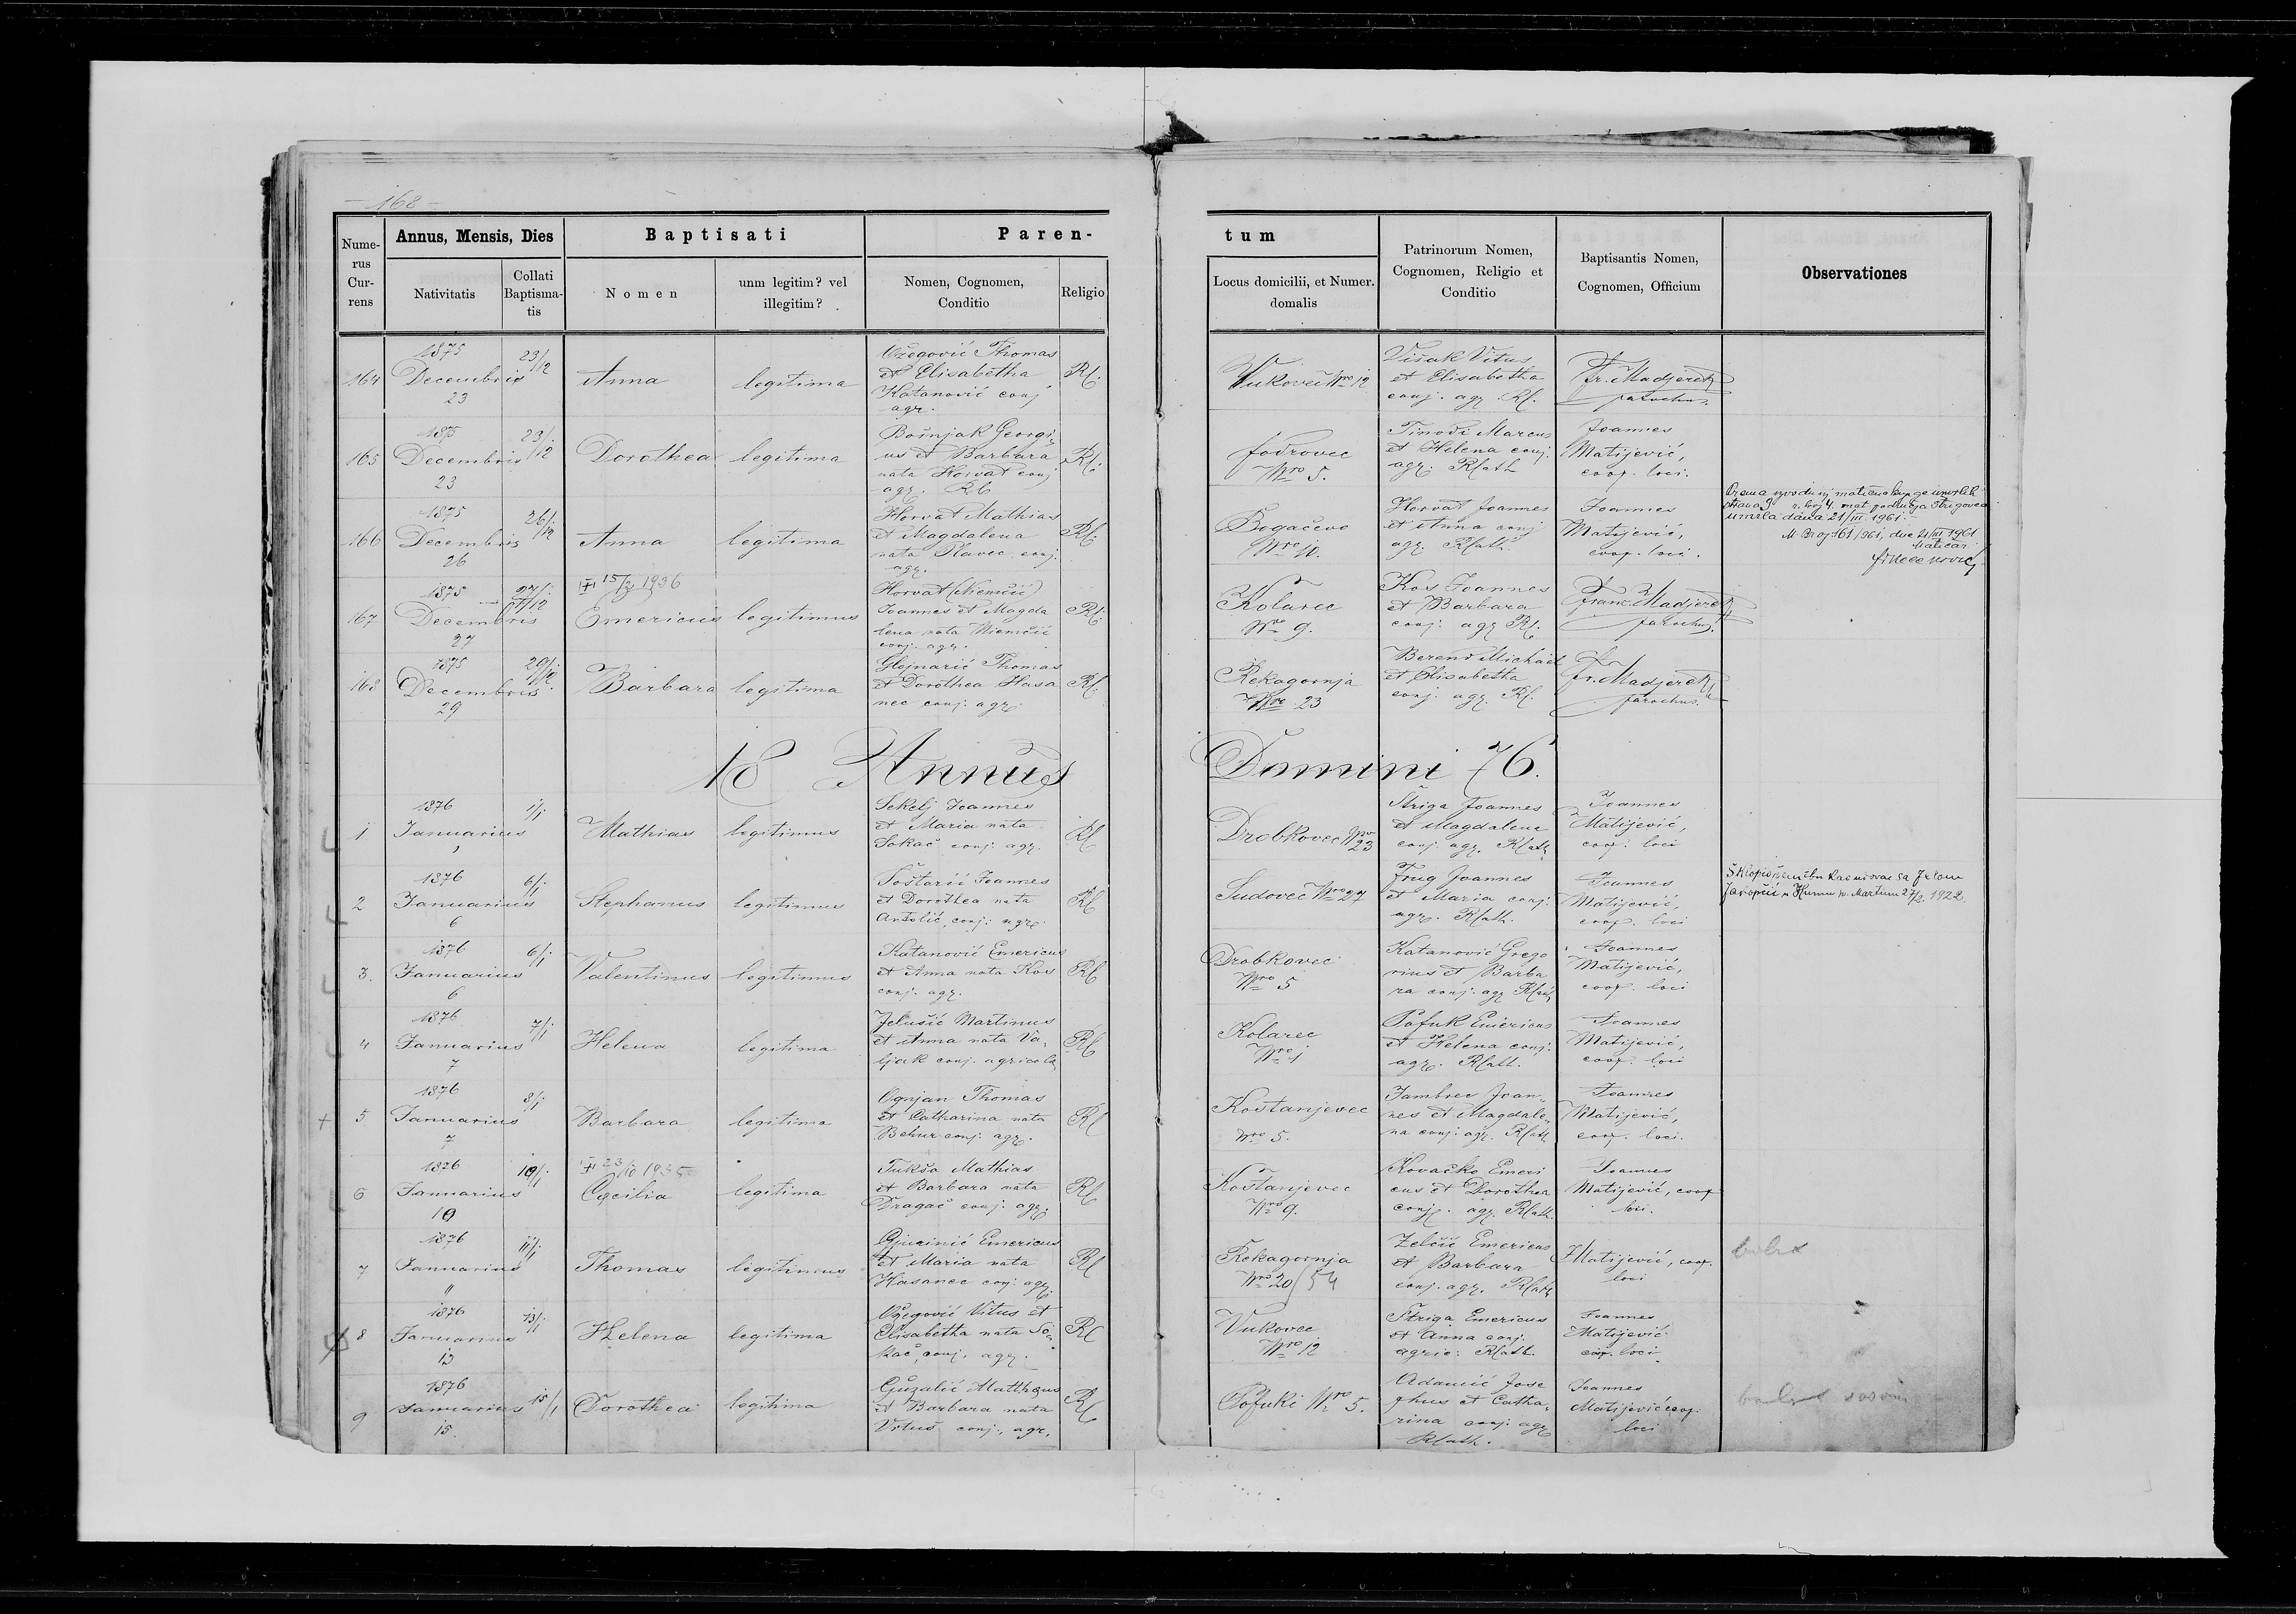 — 168 —
Nume-
rus
Cur-
rens
Annus, Mensis, Dies
Nativitatis
Collati
Baptisma-
tis
Baptisati
Nomen
unm legitim? vel
illegitim?
Paren-
Nomen, Cognomen,
Conditio
Religio
tum
Locus domicilii, et Numer.
domalis
Patrinorum Nomen,
Cognomen, Religio et
Conditio
Baptisantis Nomen,
Cognomen, Officium
Observationes
164
1875
Decembris
23
23/12
Anna
legitima
Ožegović Thomas
et Elisabetha
Katanović conj
agr.
RC.
Vukovec Nro 12
Višak Vitus
et Elisabetha
conj. agr. RC.
Fr. Madjeretz
parochus.
165
1875
Decembris
23
23/12
Dorothea
legitima
Bošnjak Georgi
us et Barbara
nata Horvat conj
agr. RC
RC.
Fodrovec
Nro 5.
Tinodi Marcus
et Helena conj.
agr. RCath
Joannes
Matijević,
coop. loci.
166
1875
Decembris
26
26/12
Anna
legitima
Horvat Mathias
et Magdalena
nata Plavec conj.
agr.
RC.
Bogačevo
Nro 10.
Horvat Joannes
et Anna conj
agr. RCath.
Joannes
Matijević,
coop. loci.
umrla dana 21/III. 1961.
M. Broj: 161/961, dne 21/III 1961.
Matičar
167
1875
Decembris
27
27/12
15/2 1936
Emericus
legitimus
Horvat (Niemčić)
Joannes et Magda
lena nata Niemčić
conj. agr.
RC.
Kolarec
Nro 9.
Kos Joannes
et Barbara
conj. agr RC.
Franc. Madjeretz
parochus.
168
1875
Decembris
29
29/12
Barbara
legitima
Glojnarić Thomas
et Dorothea Hasa
nec conj. agr.
RC.
Rekagornja
Nro 23
Berend Michael
et Elisabetha
conj. agr. RC.
Fr. Madjeretz
parochus.
18 Annus Domini 76.
1
1876
Januarius
1
1/1
Mathias
legitimus
Sekelj Joannes
et Maria nata
Sokač conj. agr.
RC
Drobkovec Nro
23
Štriga Joannes
et Magdalena
conj. agr. RCath
Joannes
Matijević,
coop. loci
2
1876
Januarius
6
6/1
Stephanus
legitimus
Šoštarić Joannes
et Dorothea nata
Antolić, conj: agr.
RC
Sudovec Nro 27
Frug Joannes
et Maria conj.
agr. RCath.
Joannes
Matijević,
coop. loci
Sklopio ženitbu sa Jelom
27/2. 1922.
3.
1876
Januarius
6
6/1
Valentinus
legitimus
Katanović Emericus
et Anna nata Kos
conj. agr.
RC
Drobkovec
Nro 5
Katanović Grego
rius et Barba
ra conj. agr RCath
Joannes
Matijević,
coop. loci
4
1876
Januarius
7
7/1
Helena
legitima
Jelušić Martinus
et Anna nata Va-
ljak conj. agricolæ
RC
Kolarec
Nro 1
Pofuk Emericus
et Helena conj.
agr. RCath.
Joannes
Matijević,
coop. loci
5
1876
Januarius
7
8/1
Barbara
legitima
Ognjan Thomas
et Catharina nata
Behur conj. agr.
RC
Kostanjevec
Nro 5.
Jambrec Joan-
nes et Magdale-
na conj. agr. RCath
Joannes
Matijević,
coop. loci.
6
1876
Januarius
10
10/1
23/10 1935
Cæcilia
legitima
Tukša Mathias
et Barbara nata
Dragač conj. agr.
RC
Kostanjevec
Nro 9.
Kovačko Emeri
cus et Dorothea
conj. agr. RCath.
Joannes
Matijević, coop
loci.
7
1876
Januarius
11
11/1
Thomas
legitimus
Gjucinić Emericus
et Maria nata
Hasanec conj. agr.
RC
Rekagornja
Nro 20/54
Zelčić Emericus
et Barbara
conj. agr. RCath
J Matijević, coop.
loci
8
1876
Januarius
13
13/1
Helena
legitima
Ožegović Vitus et
Elisabetha nata So-
kač, conj. agr.
RC
Vukovec
Nro 12
Štriga Emericus
et Anna conj.
agric: RCath.
Joannes
Matijević
coop. loci
9
1876
Januarius
15.
15/1
Dorothea
legitima
Guzalić Matthæus
et Barbara nata
Vitus conj., agr.
RC
Pofuki Nro 5.
Adamić Jose
phus et Catha-
rina conj. agr
RCath.
Joannes
Matijević coop.
loci